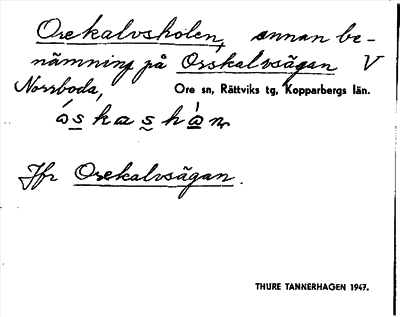 Orekalvsholen, annan be-
nämning på Orskalvsägan V
Norrboda, Ore sn, Rättviks tg, Kopparbergs län.
Jfr Orekalvsägan.
THURE TANNERHAGEN 1947.